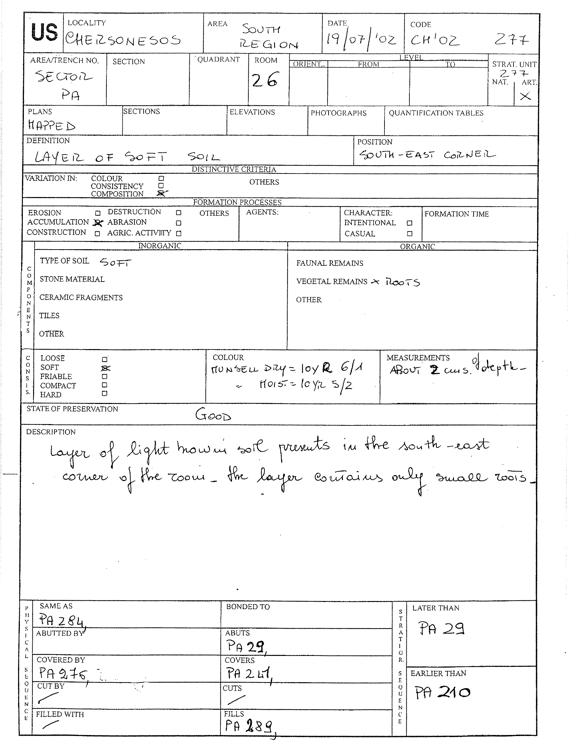 US
LOCALITY
CHERSONESOS
AREA
SOUTH
REGION
DATE
19/07/'02
CODE
CH'02 277
AREA/TRENCH NO.
SECTOR
PA
SECTION
QUADRANT
ROOM
26
LEVEL
ORIENT. FROM TO
STRAT. UNIT
277
NAT. ART.
X
PLANS
MAPPED
SECTIONS
ELEVATIONS
PHOTOGRAPHS
QUANTIFICATION TABLES
DEFINITION
LAYER OF SOFT SOIL
POSITION
SOUTH-EAST CORNER
DISTINCTIVE CRITERIA
VARIATION IN: COLOUR
CONSISTENCY
COMPOSITION
OTHERS
FORMATION PROCESSES
EROSION DESTRUCTION OTHERS
ACCUMULATION ABRASION
CONSTRUCTION AGRIC. ACTIVITY
AGENTS:
CHARACTER:
INTENTIONAL
CASUAL
FORMATION TIME
COMPONENTS
INORGANIC
TYPE OF SOIL SOFT
STONE MATERIAL
CERAMIC FRAGMENTS
TILES
OTHER
ORGANIC
FAUNAL REMAINS
VEGETAL REMAINS x ROOTS
OTHER
CONSIS.
LOOSE
SOFT
FRIABLE
COMPACT
HARD
COLOUR
MUNSELL DRY = 10YR 6/1
" MOIST = 10YR 5/2
MEASUREMENTS
ABOUT 2 cms. of depth-
STATE OF PRESERVATION
GOOD
DESCRIPTION
Layer of light brown soil presents in the south-east
corner of the room_ the layer contains only small roots_
PHYSICAL SEQUENCE
SAME AS
PA 284,
BONDED TO
ABUTTED BY
ABUTS
PA 29,
COVERED BY
PA 276,
COVERS
CUT BY
/
CUTS
/
FILLED WITH
/
FILLS
PA 289,
STRATIGR. SEQUENCE
LATER THAN
PA 29
EARLIER THAN
PA 210